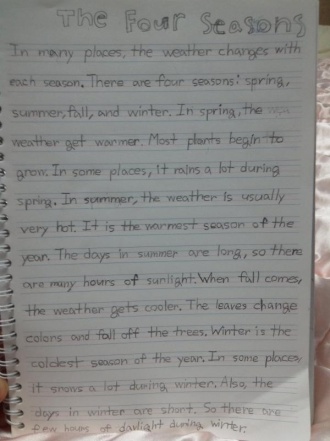 The Four Seasons
In many places, the weather changes with
each season. There are four seasons: spring,
summer, fall, and winter. In spring, the
weather get warmer. Most plants begin to
grow. In some places, it rains a lot during
spring. In summer, the weather is usually
very hot. It is the warmest season of the
year. The days in summer are long, so there
are many hours of sunlight. When fall comes,
the weather gets cooler. The leaves change
colors and fall off the trees. Winter is the
coldest season of the year. In some places,
it snows a lot during winter. Also, the
days in winter are short. So there are
few hours of daylight during winter.